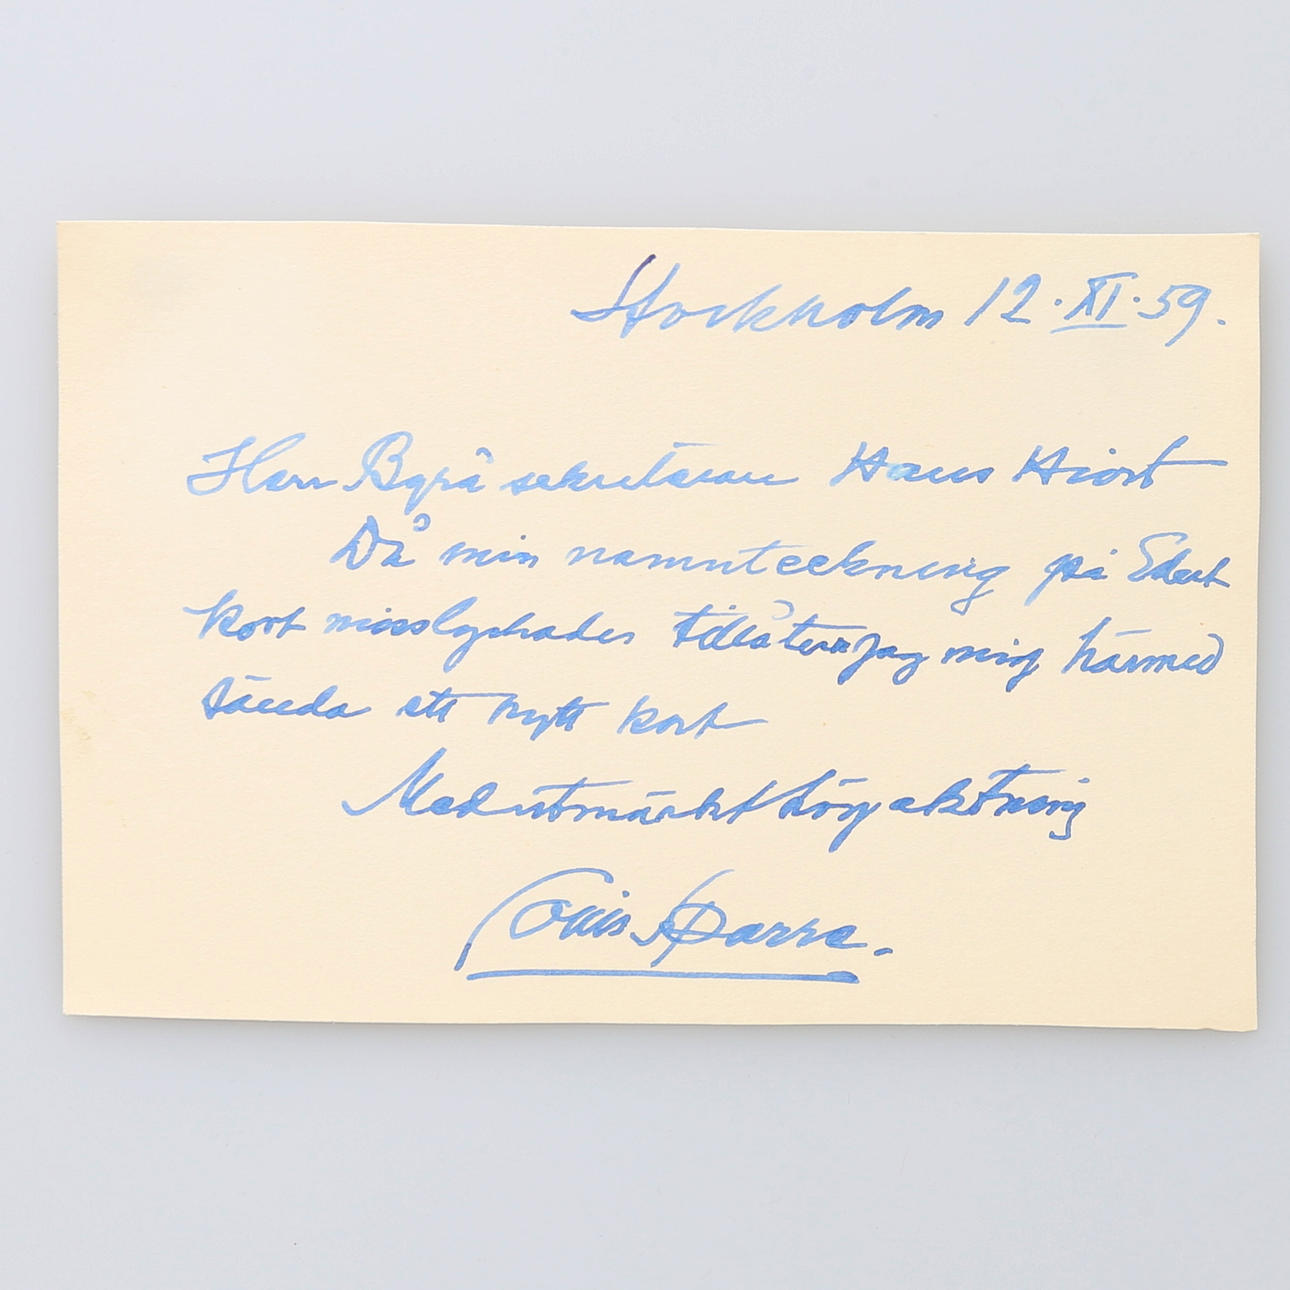 Stockholm 12.XI.59.
Herr Byråsekreteraren Hans Hiort
Då min namnteckning på Edert
kort misslyckades tillåter jag mig härmed
sända ett nytt kort
Med utmärkt högaktning
Louis Sparre.